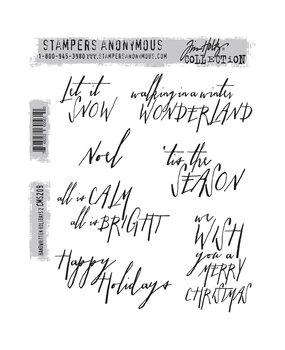 STAMPERS ANONYMOUS
1-800-945-3980
Tim Holtz
COLLECTION
Let it
SNOW
walking in a winter
WONDERLAND
Noel
'tis the
SEASON
all is CALM
all is BRIGHT
we
WISH
you a
MERRY
CHRISTMAS
Happy
Holidays
HANDWRITTEN HOLIDAYS 2 CMS209